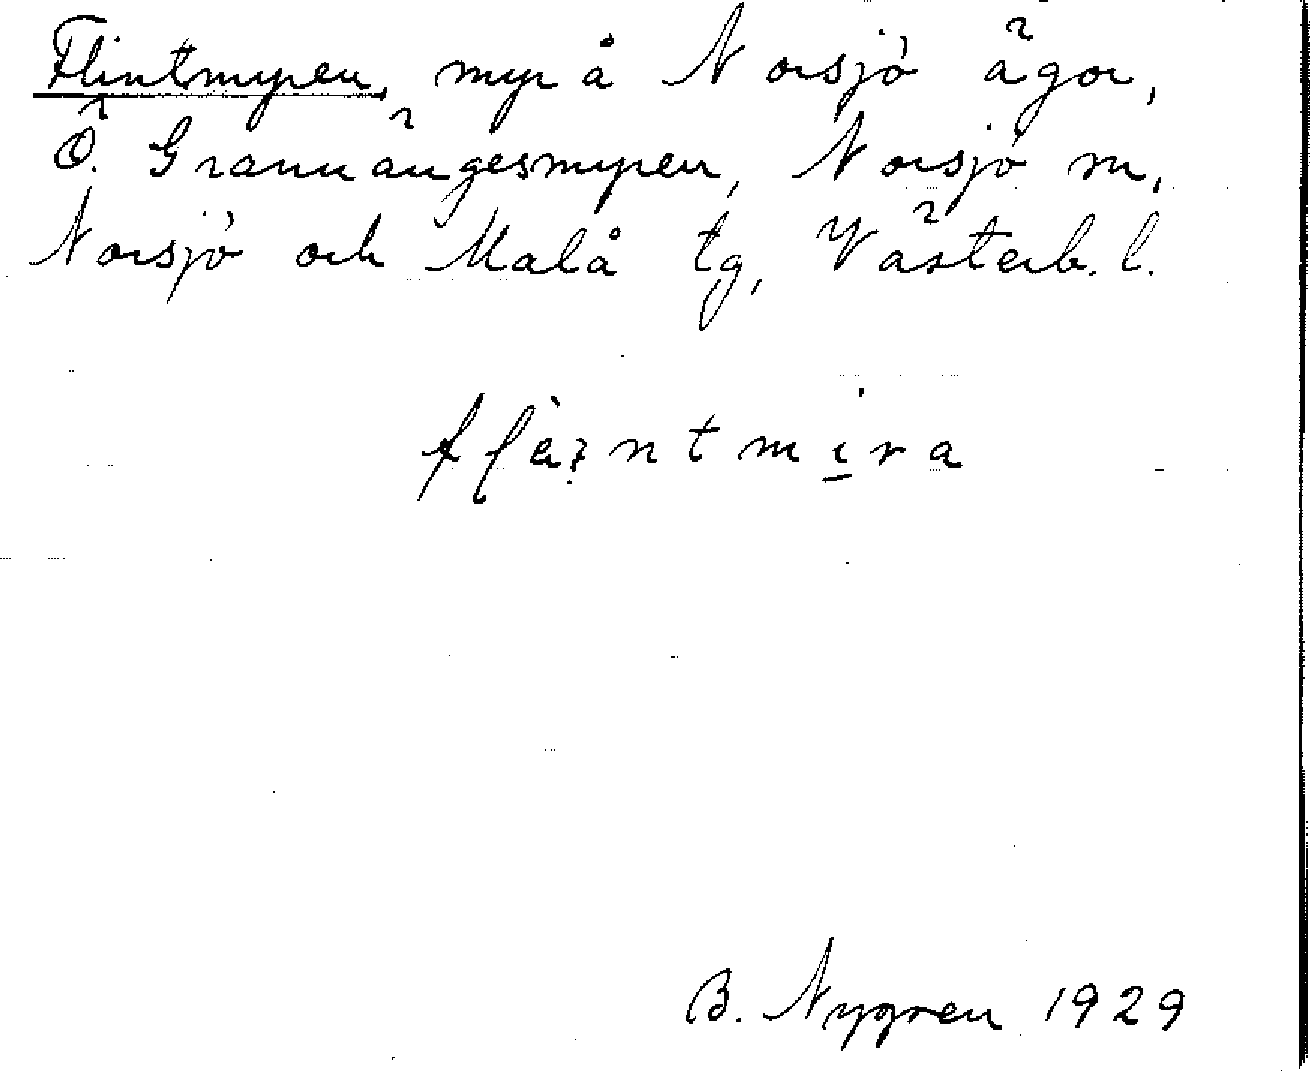 Flintmyren, myr å Norsjö ägor,
Ö. Grannängesmyren, Norsjö sn,
Norsjö och Malå tg, Västerb. l.
B. Nygren 1929